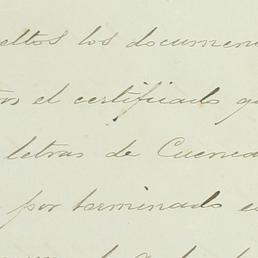 eltos los documen
os el certificado q
letras de Cuenca
por terminado e